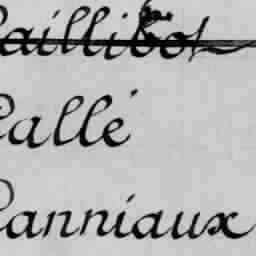 Caillibot
Callé
Canniaux